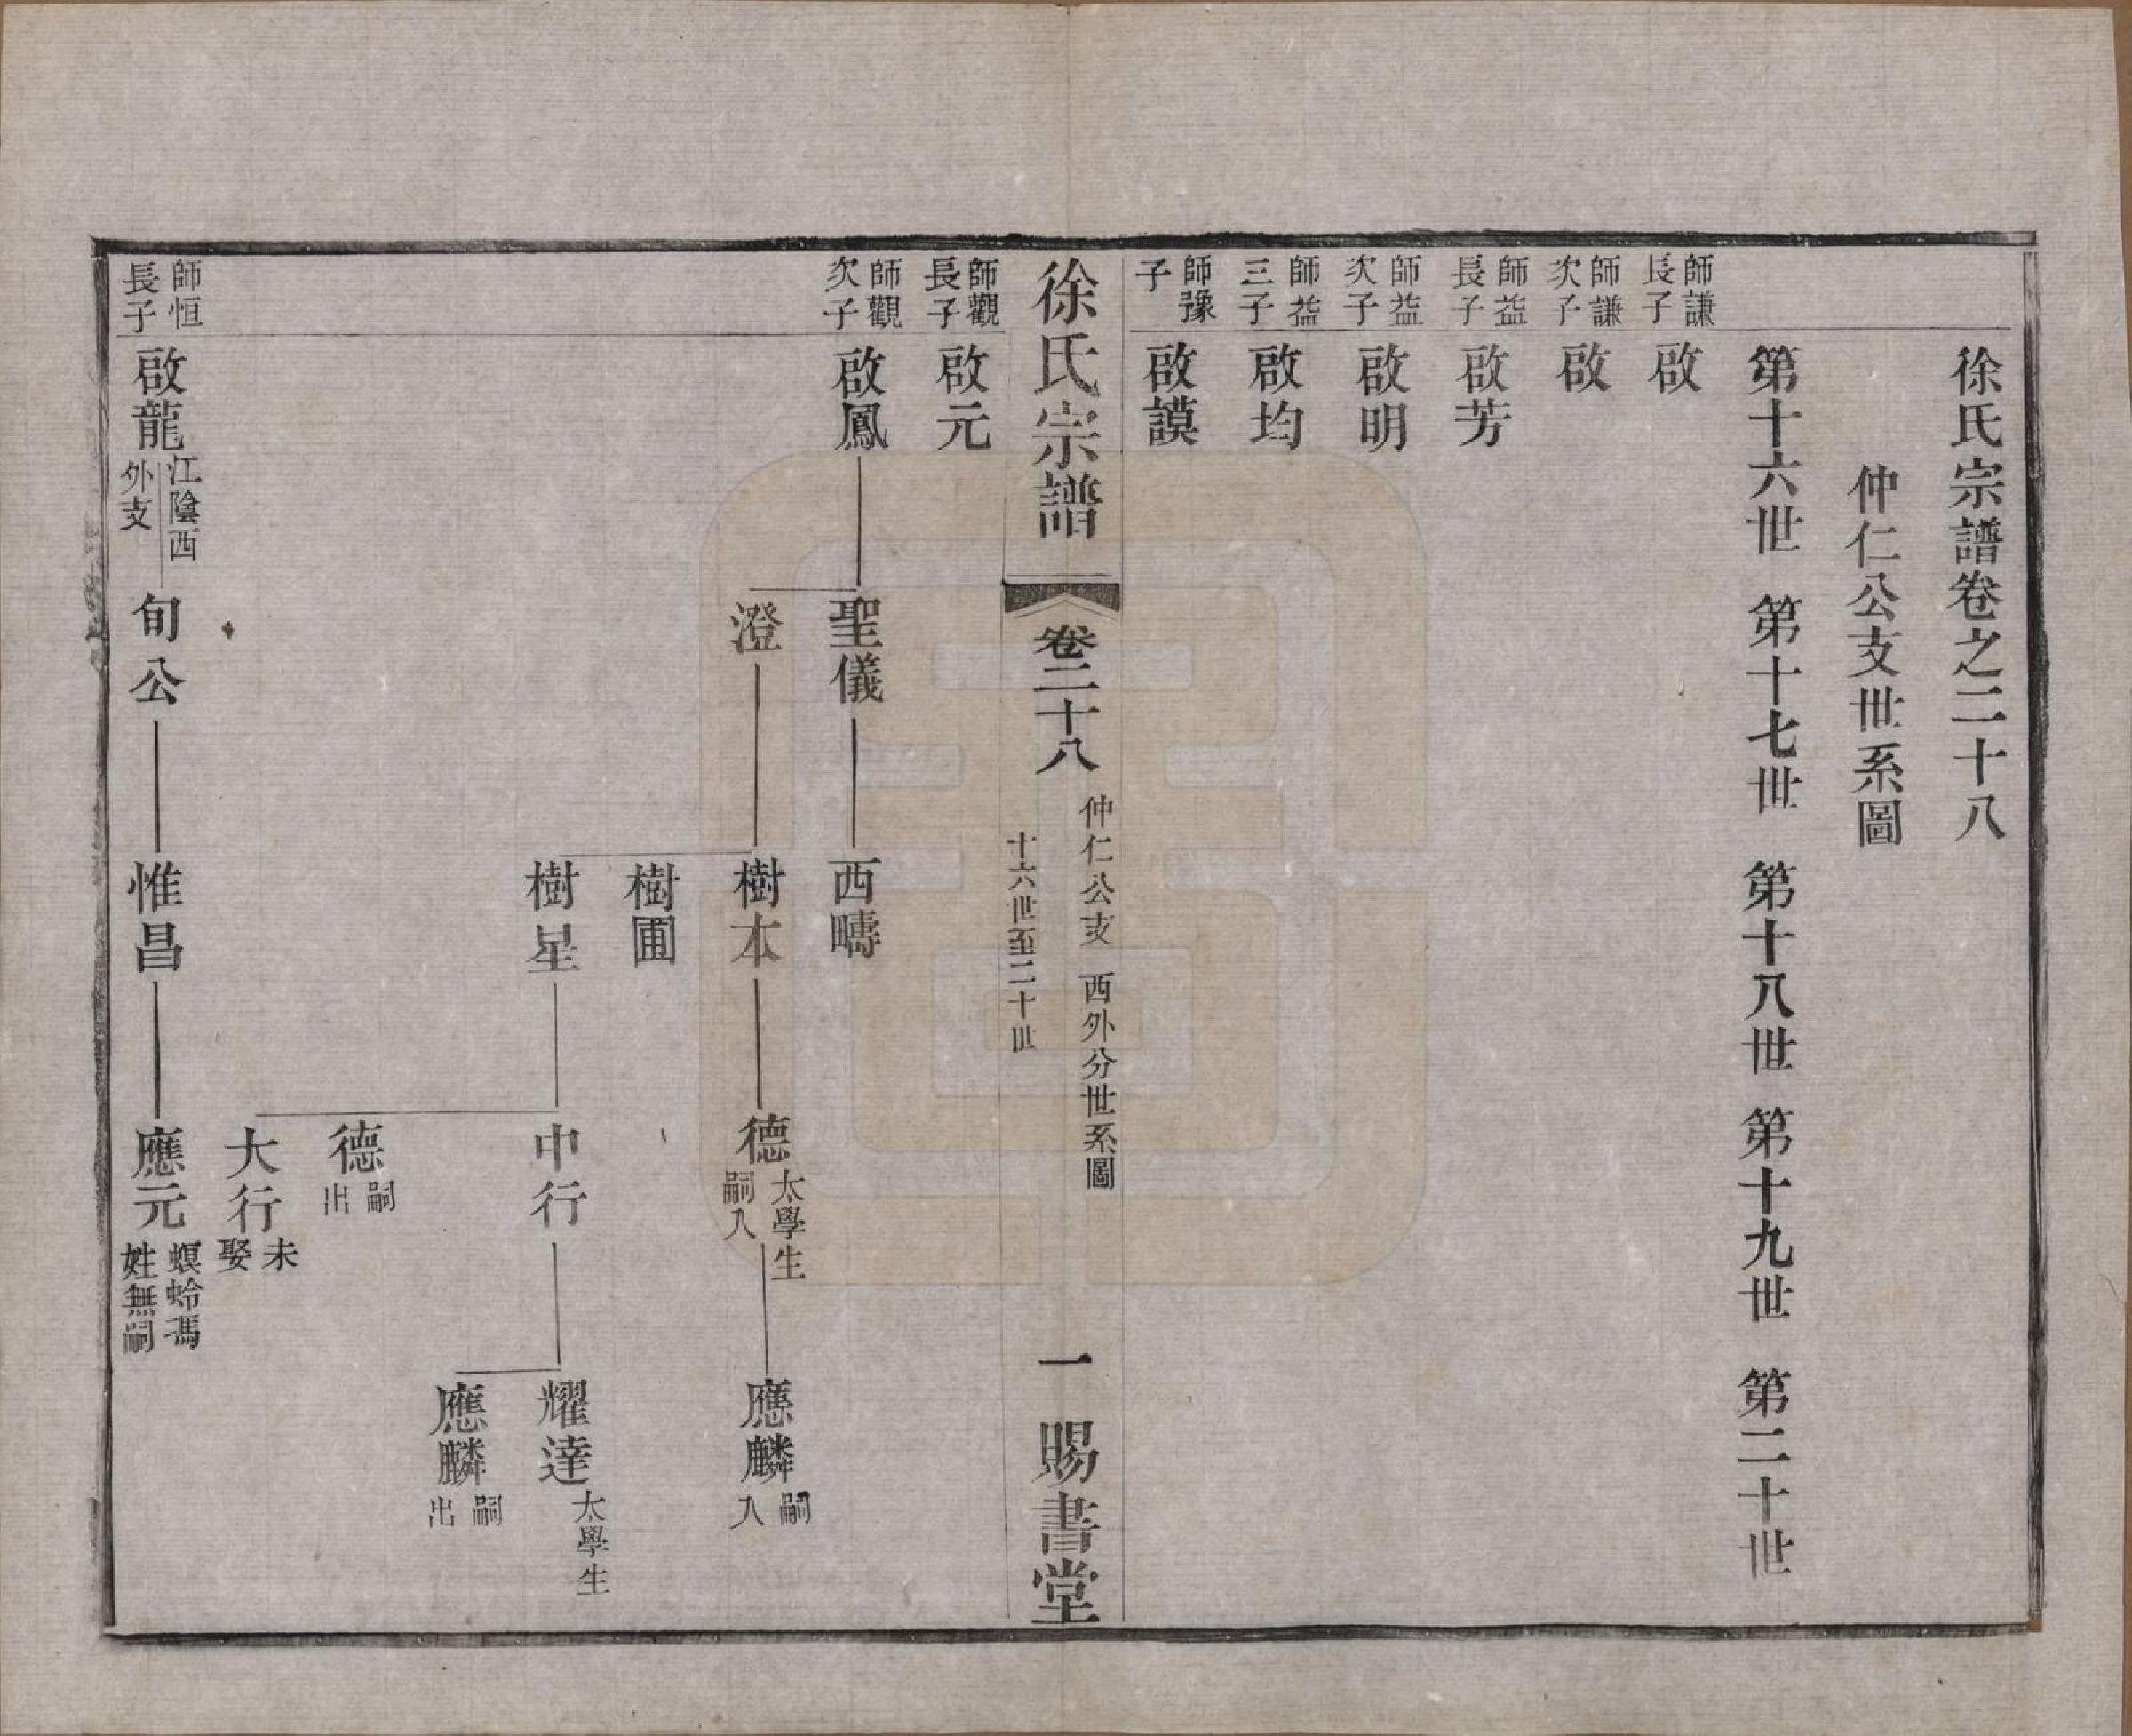 徐氏宗譜卷之二十八
仲仁公支世系圖
第十六世 第十七世 第十八世 第十九世 第二十世
師謙長子 啟
師謙次子 啟
師益長子 啟芳
師益次子 啟明
師益三子 啟均
師豫子 啟謨
徐氏宗譜 卷二十八 仲仁公支 西外分世系圖 十六世至二十世 一 賜書堂
師觀長子 啟元
師觀次子 啟鳳 聖儀 西疇
澄 樹本 德 太學生嗣入 應麟 嗣入
樹圃
樹星 中行 耀達 太學生
應麟 嗣出
德 嗣出
大行 未娶
師恒長子 啟龍 江陰西外支 旬公 惟昌 應元 螟蛉馮姓無嗣